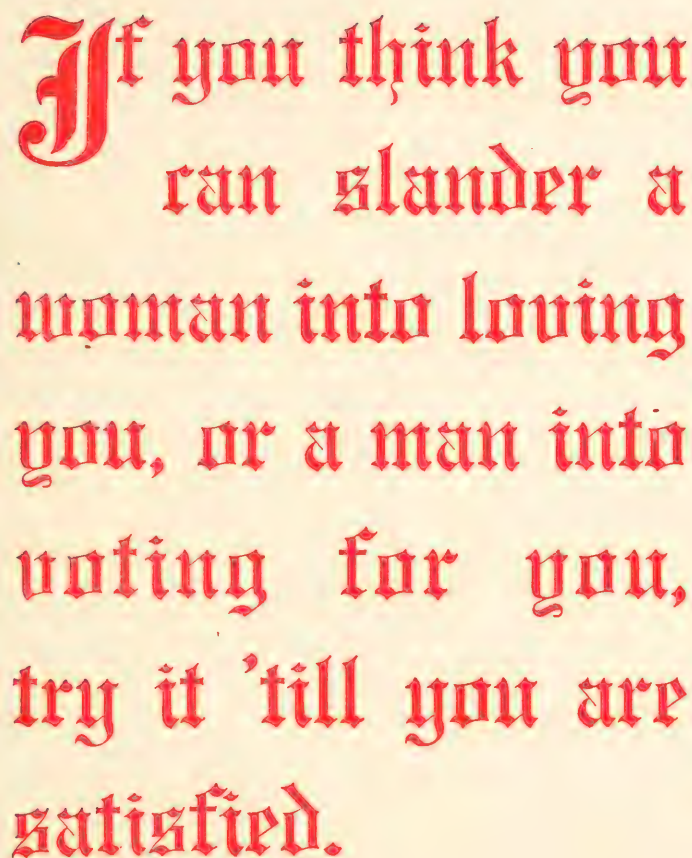 If you think you
can slander a
woman into loving
you, or a man into
voting for you,
try it 'till you are
satisfied.